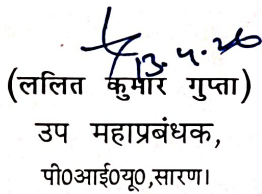 13.4.26
(ललित कुमार गुप्ता)
उप महाप्रबंधक,
पी0आई0यू0,सारण।